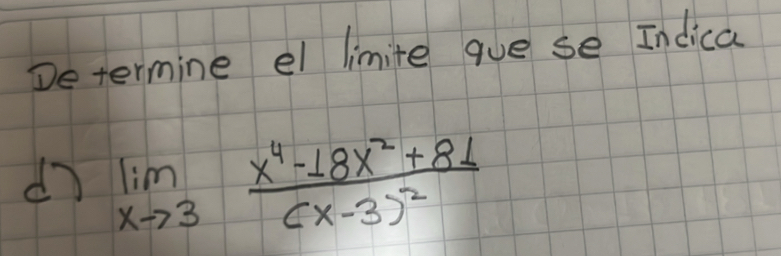 Determine el limite que se Indica
d) lim x→3 x⁴-18x²+81 / (x-3)²